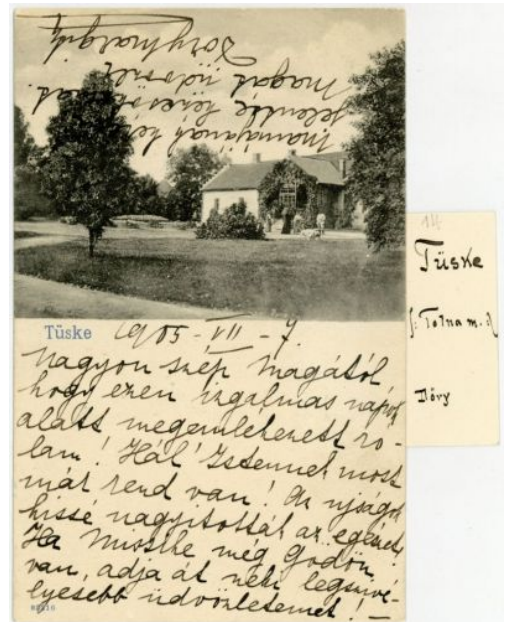 mamájának
jelentse
magát üdvözli
Dory Margit
Tüske 1905-VII-7.
Nagyon szép magától
hogy ezen izgalmas napok
alatt megemlékezett ró-
lam! Hál' Istennek most
már rend van! Az ujságok
kissé nagyitották az egészet,
Ha Misske még Gödön
van, adja át neki legszivé-
lyesebb üdvözletemet! —
14
Tüske
/: Tolna m. :/
Dőry